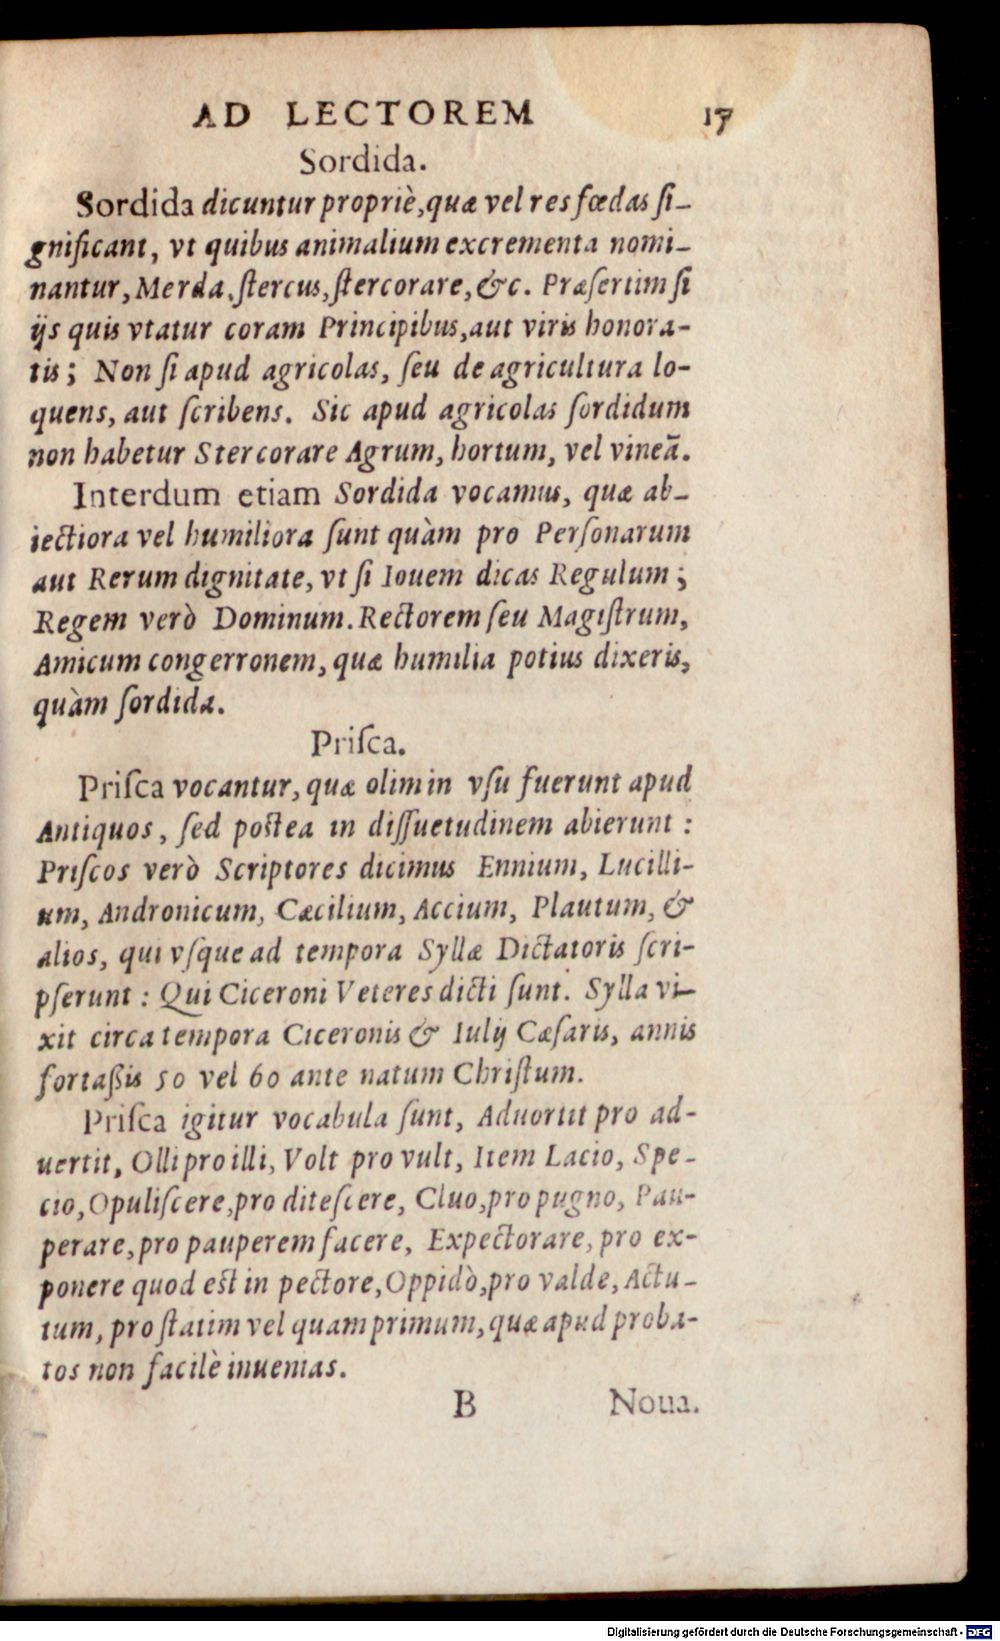 AD LECTOREM 17
Sordida.
Sordida dicuntur propriè, quæ vel res fœdas ſi-
gnificant, vt quibus animalium excrementa nomi-
nantur, Merda, ſtercus, ſtercorare, &c. Præſertim ſi
ijs quis vtatur coram Principibus, aut viris honora-
tis; Non ſi apud agricolas, ſeu de agricultura lo-
quens, aut ſcribens. Sic apud agricolas ſordidum
non habetur Stercorare Agrum, hortum, vel vineã.
Interdum etiam Sordida vocamus, quæ ab-
iectiora vel humiliora ſunt quàm pro Perſonarum
aut Rerum dignitate, vt ſi Iouem dicas Regulum;
Regem verò Dominum. Rectorem ſeu Magiſtrum,
Amicum congerronem, quæ humilia potius dixeris,
quàm ſordida.
Priſca.
Priſca vocantur, quæ olim in vſu fuerunt apud
Antiquos, ſed poſtea in diſſuetudinem abierunt:
Priſcos verò Scriptores dicimus Ennium, Lucilli-
um, Andronicum, Cæcilium, Accium, Plautum, &
alios, qui vſque ad tempora Syllæ Dictatoris ſcri-
pſerunt: Qui Ciceroni Veteres dicti ſunt. Sylla vi-
xit circa tempora Ciceronis & Iulij Cæſaris, annis
fortaßis 50 vel 60 ante natum Chriſtum.
Priſca igitur vocabula ſunt, Aduortit pro ad-
uertit, Olli pro illi, Volt pro vult, Item Lacio, Spe-
cio, Opuliſcere, pro diteſcere, Cluo, pro pugno, Pau-
perare, pro pauperem facere, Expectorare, pro ex-
ponere quod eſt in pectore, Oppidò, pro valde, Actu-
tum, pro ſtatim vel quamprimum, quæ apud proba-
tos non facilè inuenias.
B Noua.
Digitalisierung gefördert durch die Deutsche Forschungsgemeinschaft - DFG